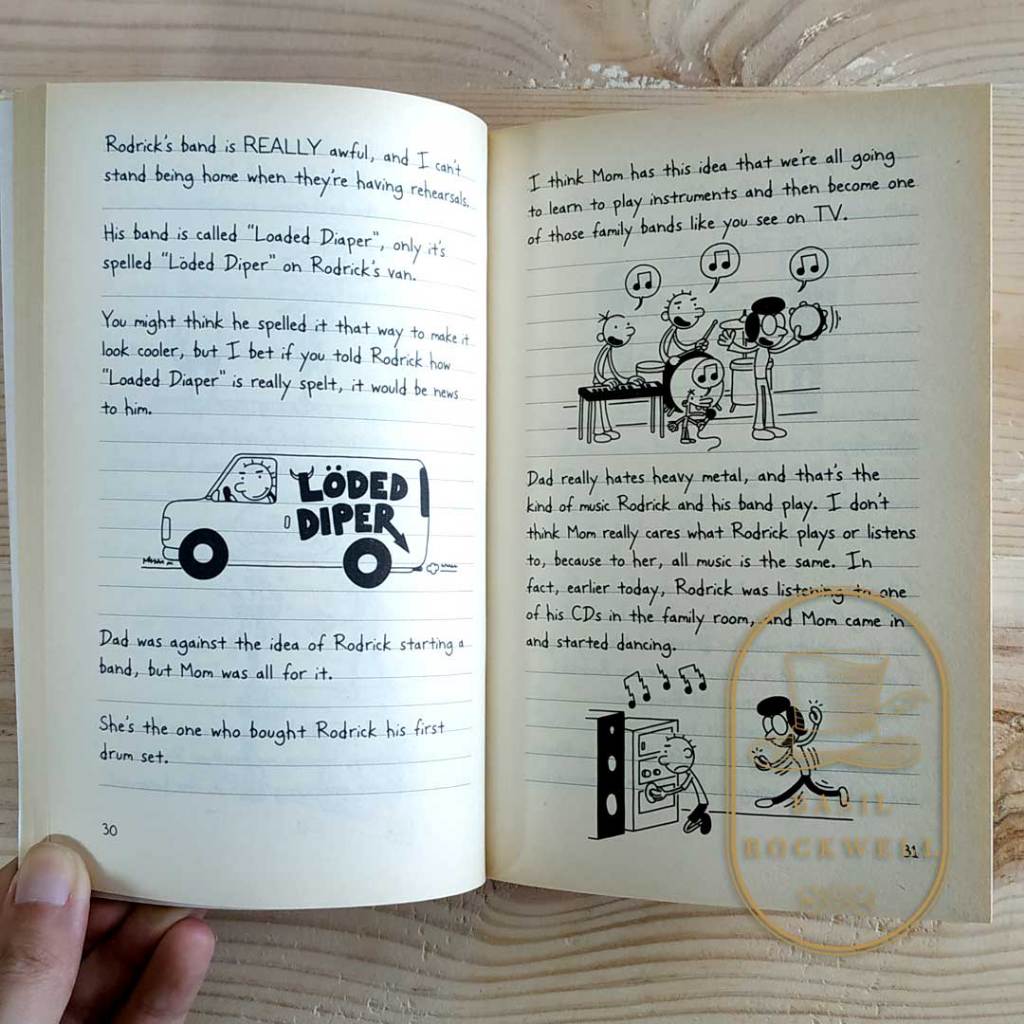 Rodrick's band is REALLY awful, and I can't
stand being home when they're having rehearsals.
His band is called "Loaded Diaper", only it's
spelled "Löded Diper" on Rodrick's van.
You might think he spelled it that way to make it
look cooler, but I bet if you told Rodrick how
"Loaded Diaper" is really spelt, it would be news
to him.
LÖDED
DIPER
Dad was against the idea of Rodrick starting a
band, but Mom was all for it.
She's the one who bought Rodrick his first
drum set.
30
I think Mom has this idea that we're all going
to learn to play instruments and then become one
of those family bands like you see on TV.
Dad really hates heavy metal, and that's the
kind of music Rodrick and his band play. I don't
think Mom really cares what Rodrick plays or listens
to, because to her, all music is the same. In
fact, earlier today, Rodrick was listening to one
of his CDs in the family room, and Mom came in
and started dancing.
31
BASIL
ROCKWELL